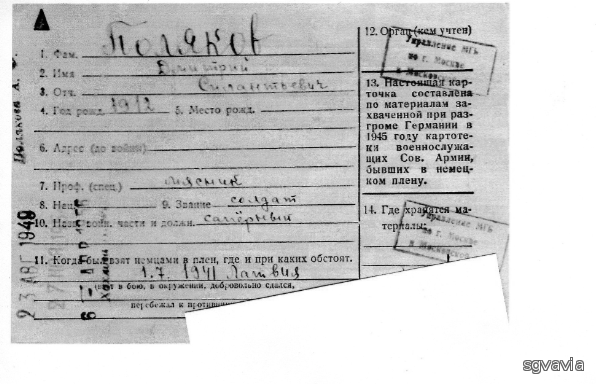 1. Фам. Поляков
2. Имя Дмитрий
3. Отч. Силантьевич
4. Год рожд. 1912 5. Место рожд.
6. Адрес (до войны)
7. Проф. (спец.) мясник
8. Нац. 9. Звание солдат
10. Назв. воин. части и должн. сапёрный
11. Когда был взят немцами в плен, где и при каких обстоят.
1.7.1941 Латвия
(взят в бою, в окружении, добровольно сдался,
перебежал к противни
12. Орган (кем учтен)
Управление МГБ
по г. Москве
13. Настоящая кар-
точка составлена
по материалам за-
хваченной при раз-
громе Германии в
1945 году картоте-
ки военнослужа-
щих Сов. Армии,
бывших в немец-
ком плену.
14. Где хранятся ма-
териалы:
Управление МГБ
по г. Москве
Полякова А.
23 АВГ 1949
sgvavia